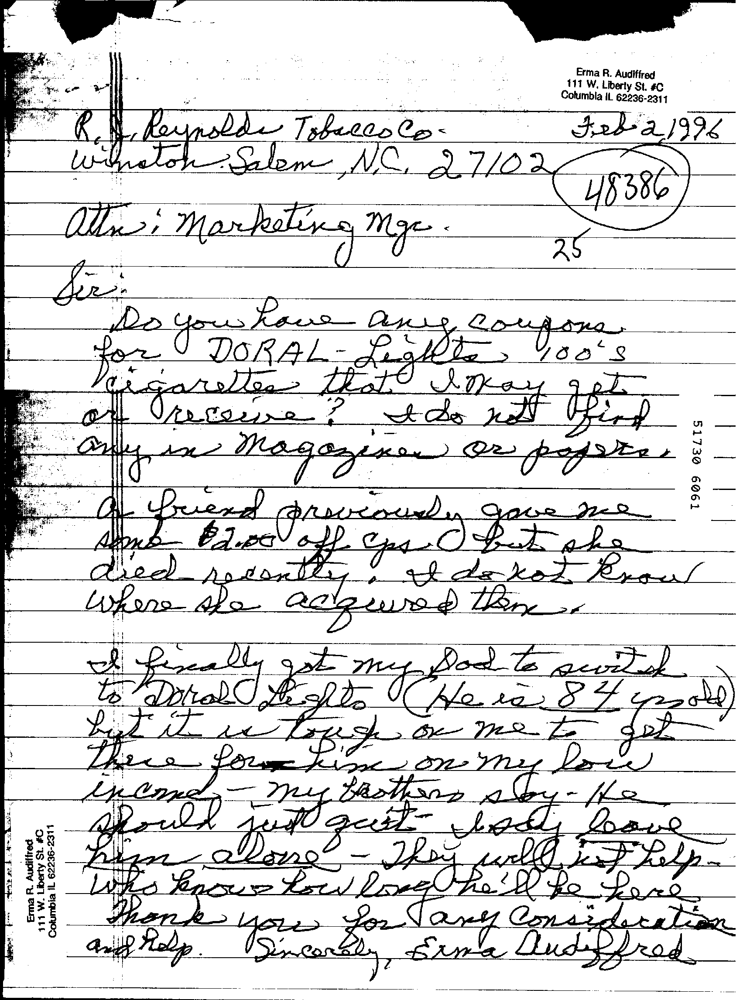 Erma R. Audiffred
111 W. Liberty St. #C
Columbia IL 62236-2311
R. J. Reynolds Tobacco Co.
Feb 2, 1996
Winston Salem, N.C. 27102
48386
Attn: Marketing Mgr.
25
Sir:
Do you have any coupons
for DORAL-Lights, 100's
cigarettes that I may get
or receive? I do not find
any in Magazines or papers.
51730 6061
A friend previously gave me
some $2.00 off cps. but she
died recently. I do not know
where she acquired them.
I finally got my Dad to switch
to Doral Lights (He is 84 yrs old)
but it is tough on me to get
these for him on my low
income - my brothers say - He
should just quit - I say leave
him alone - They will not help -
who knows how long he'll be here.
Thank you for any consideration
and help. Sincerely, Erma Audiffred
Erma R. Audiffred
111 W. Liberty St. #C
Columbia IL 62236-2311